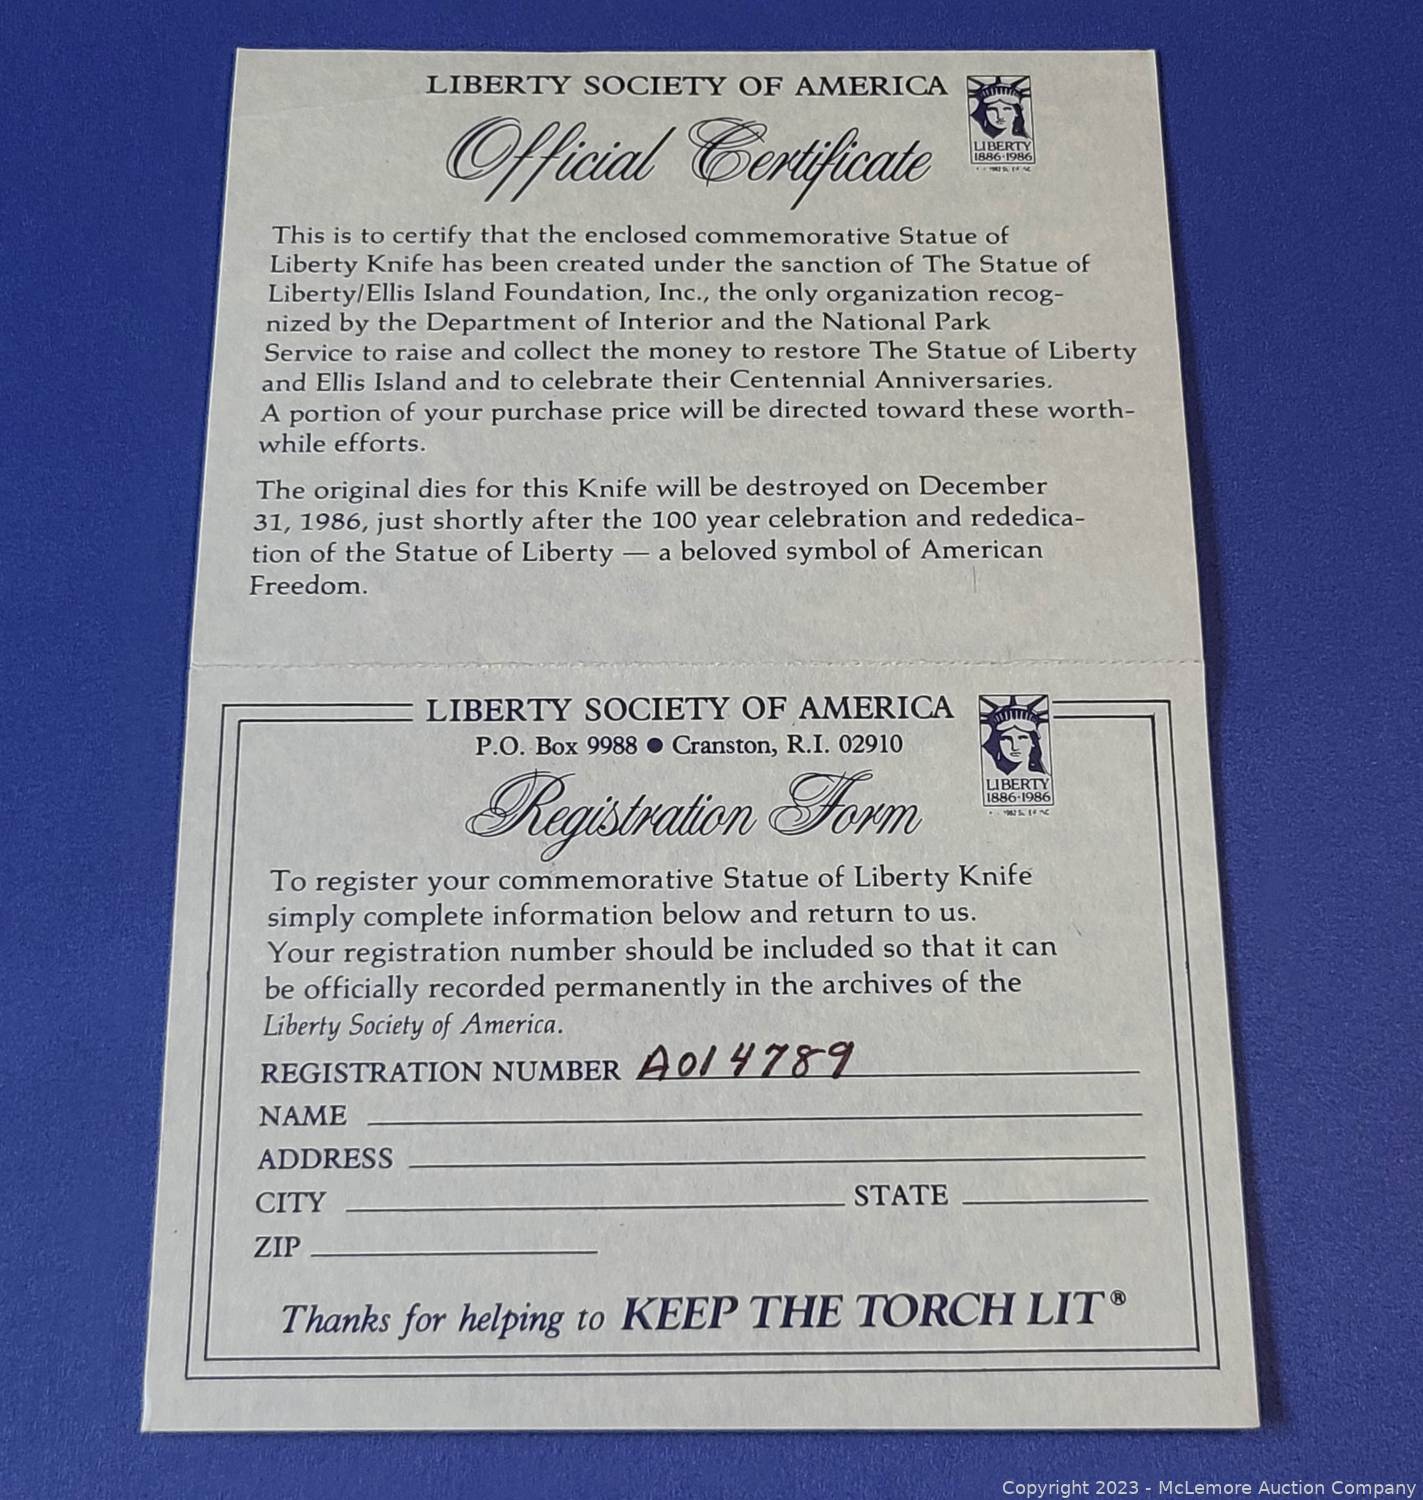 LIBERTY SOCIETY OF AMERICA
Official Certificate
LIBERTY
1886·1986
This is to certify that the enclosed commemorative Statue of
Liberty Knife has been created under the sanction of The Statue of
Liberty/Ellis Island Foundation, Inc., the only organization recog-
nized by the Department of Interior and the National Park
Service to raise and collect the money to restore The Statue of Liberty
and Ellis Island and to celebrate their Centennial Anniversaries.
A portion of your purchase price will be directed toward these worth-
while efforts.
The original dies for this Knife will be destroyed on December
31, 1986, just shortly after the 100 year celebration and rededica-
tion of the Statue of Liberty — a beloved symbol of American
Freedom.
LIBERTY SOCIETY OF AMERICA
P.O. Box 9988 ● Cranston, R.I. 02910
Registration Form
LIBERTY
1886·1986
To register your commemorative Statue of Liberty Knife
simply complete information below and return to us.
Your registration number should be included so that it can
be officially recorded permanently in the archives of the
Liberty Society of America.
REGISTRATION NUMBER A014789
NAME
ADDRESS
CITY STATE
ZIP
Thanks for helping to KEEP THE TORCH LIT®
Copyright 2023 - McLemore Auction Company